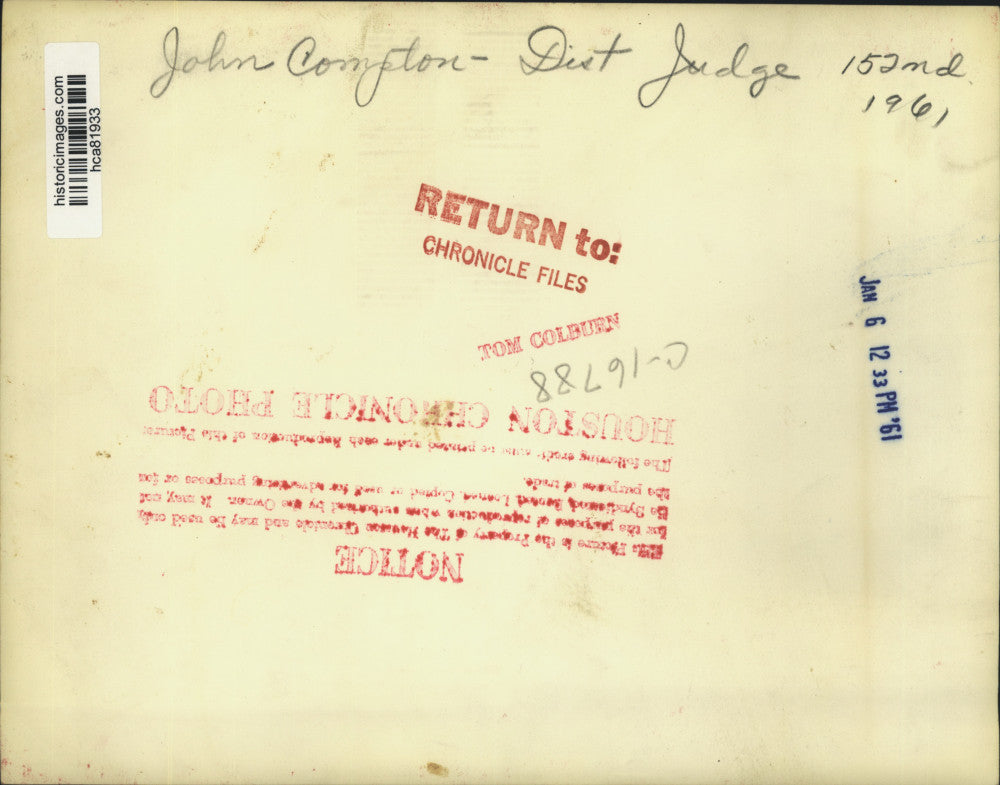 John Compton - Dist Judge 152nd
1961
historicimages.com
hca81933
RETURN to:
CHRONICLE FILES
TOM COLBURN
JAN 6 12 33 PM '61
NOTICE
This Picture is the Property of The Houston Chronicle and may be used only
for the purposes of reproduction when authorized by the Owner. It may not
Be Syndicated, Rented, Loaned, Copied or used for advertising purposes or for
the purposes of trade.
The following credit must be printed under each Reproduction of this Picture:
HOUSTON CHRONICLE PHOTO